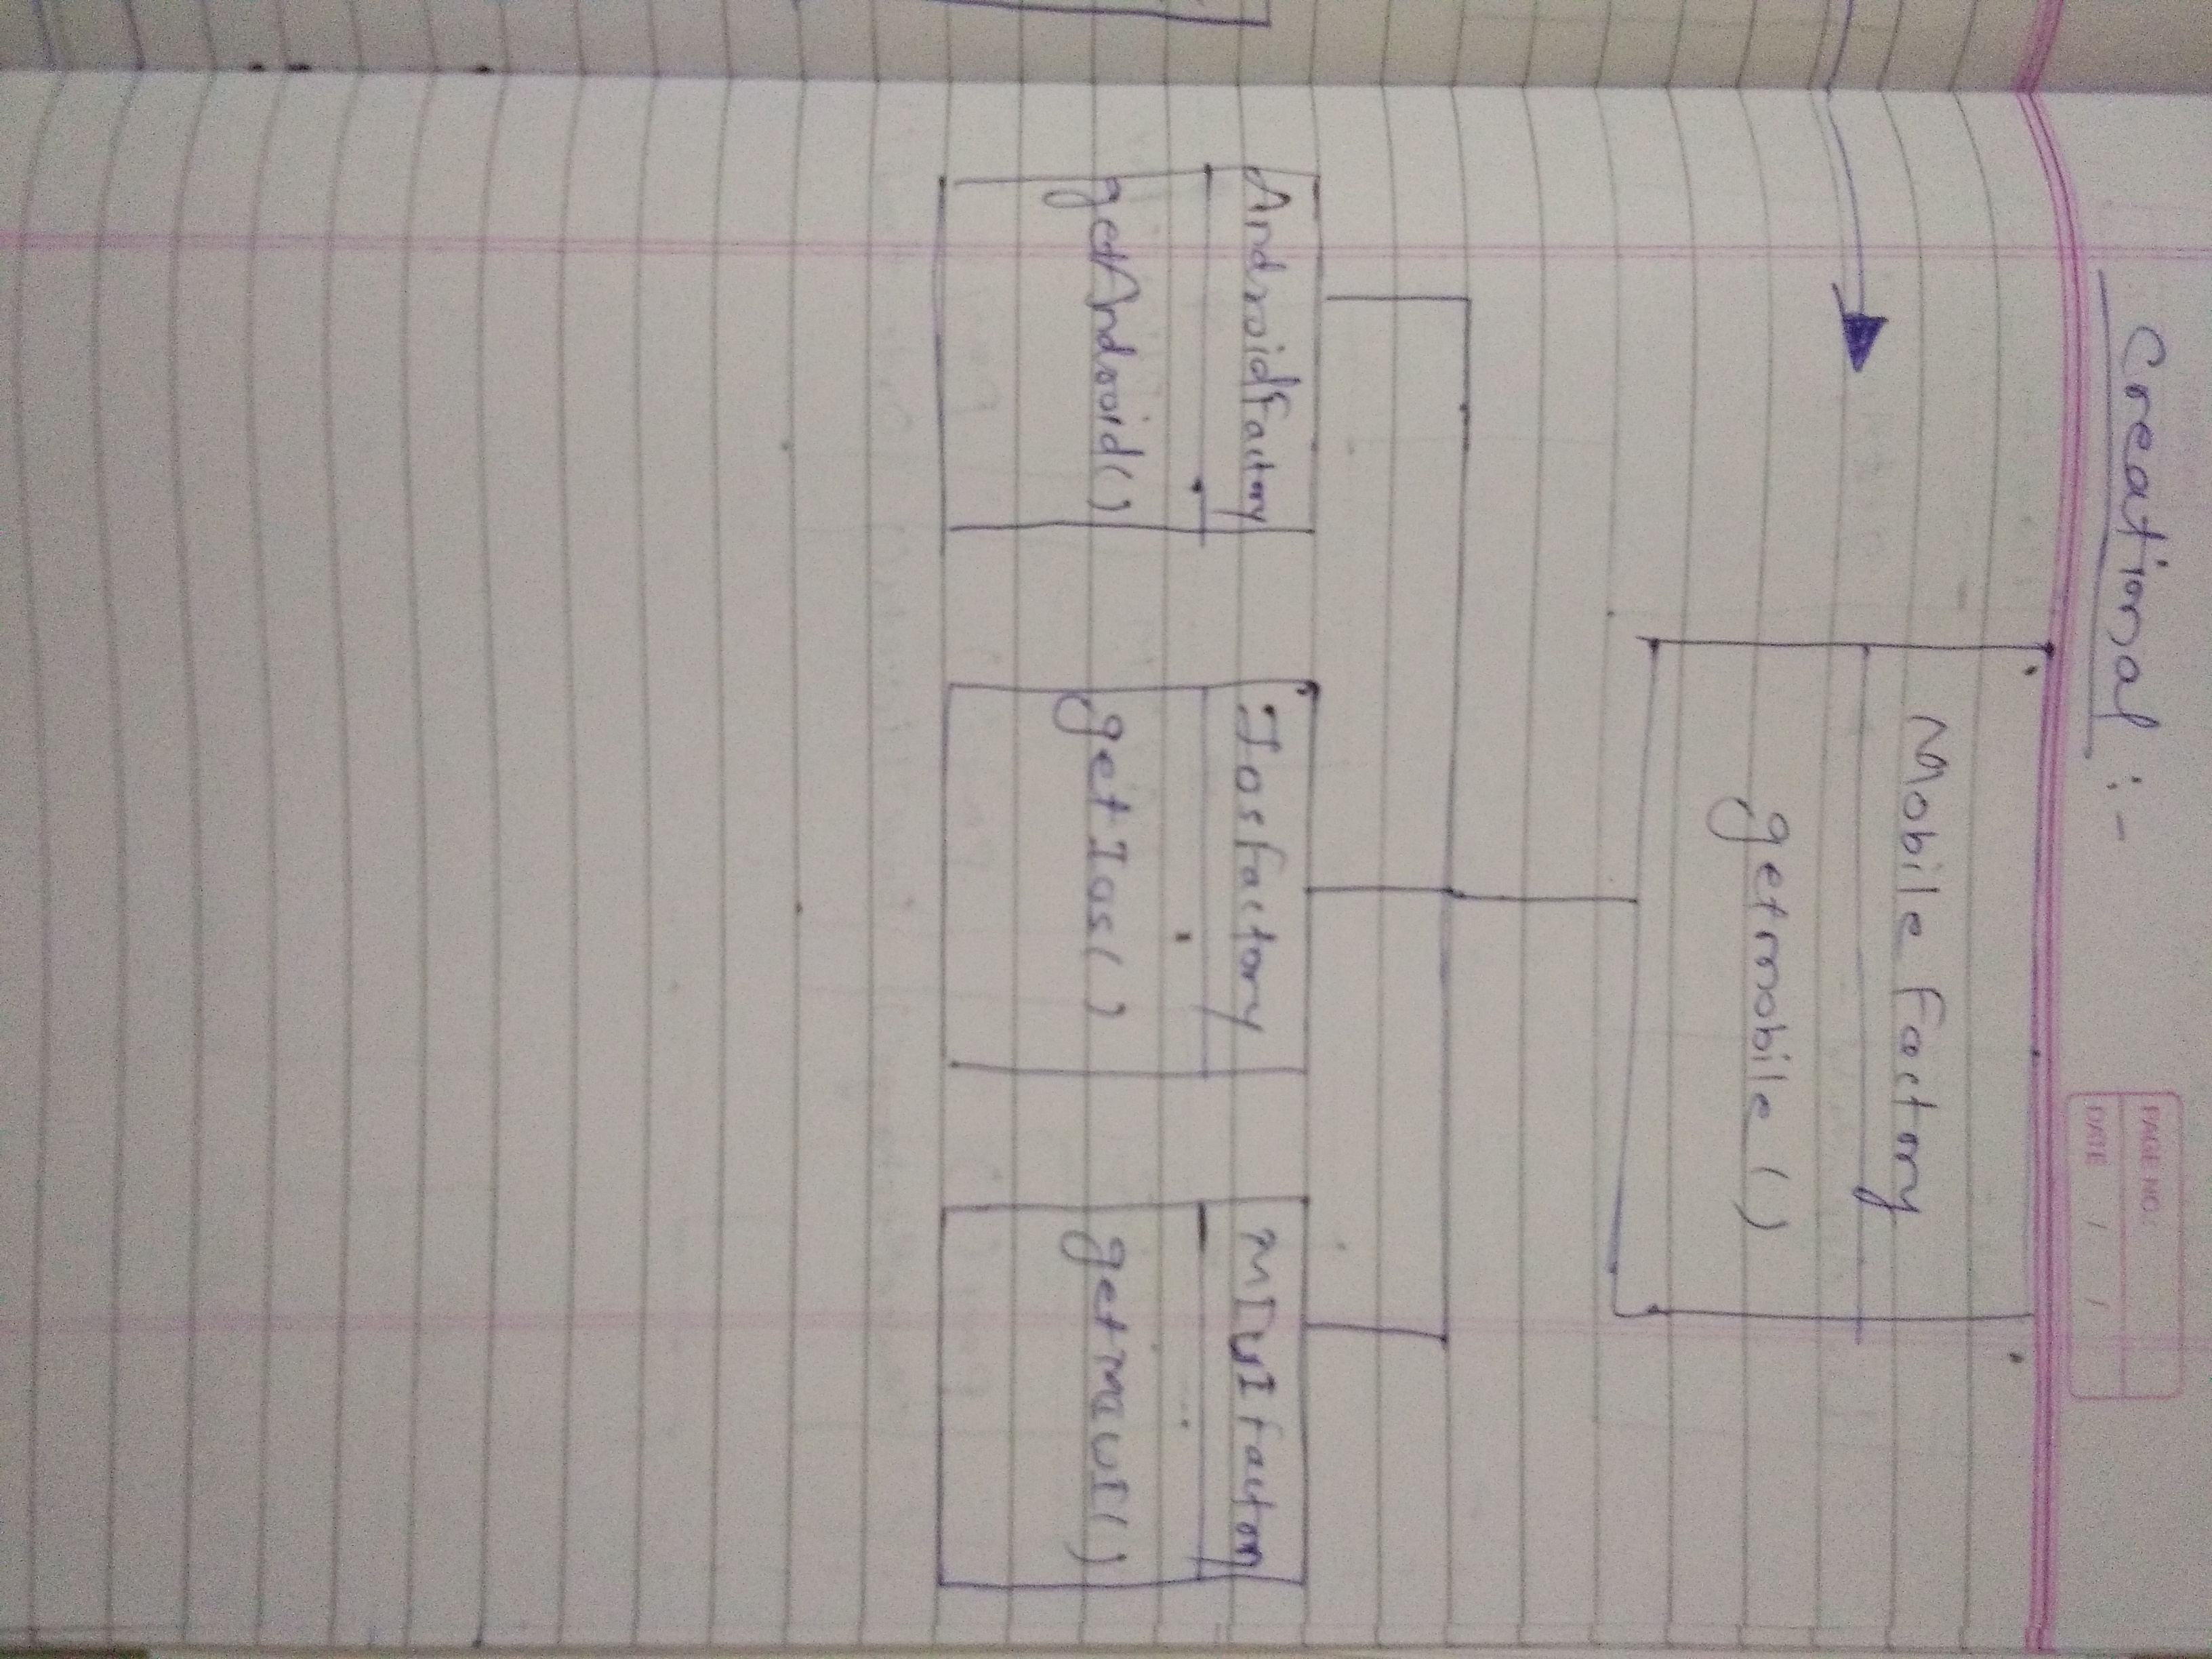 PAGE NO.:
DATE / /
Creational :-
Mobile factory
getmobile ()
Androidfactory
getAndroid()
Iosfactory
getIos()
MIUIfactory
getmauI()